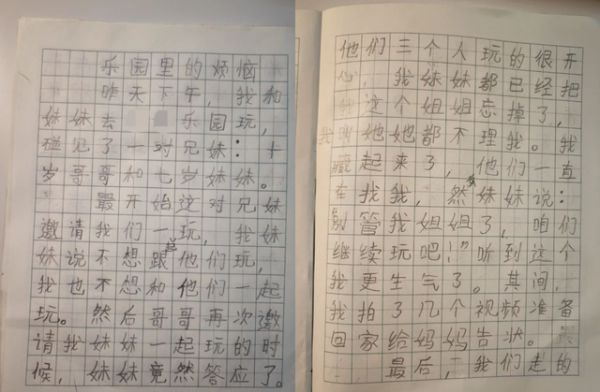 乐园里的烦恼
昨天下午，我和
妹妹去 乐园玩，
碰见了一对兄妹：十
岁哥哥和七岁妹妹。
最开始这对兄妹
邀请我们一玩，我妹
妹说不想跟他们玩，
我也不想和他们一起
玩。然后哥哥再次邀
请我妹妹一起玩的时
候，妹妹竟然答应了。
他们三个人玩的很开
心，我妹妹都已经把
我这个姐姐忘掉了，
我叫她她都不理我。我
藏起来了，他们一直
在找我，然妹妹说：
别管我姐姐了，咱们
继续玩吧！”听到这个
我更生气了。其间，
我拍了几个视频准备
回家给妈妈告状。
最后，我们走的